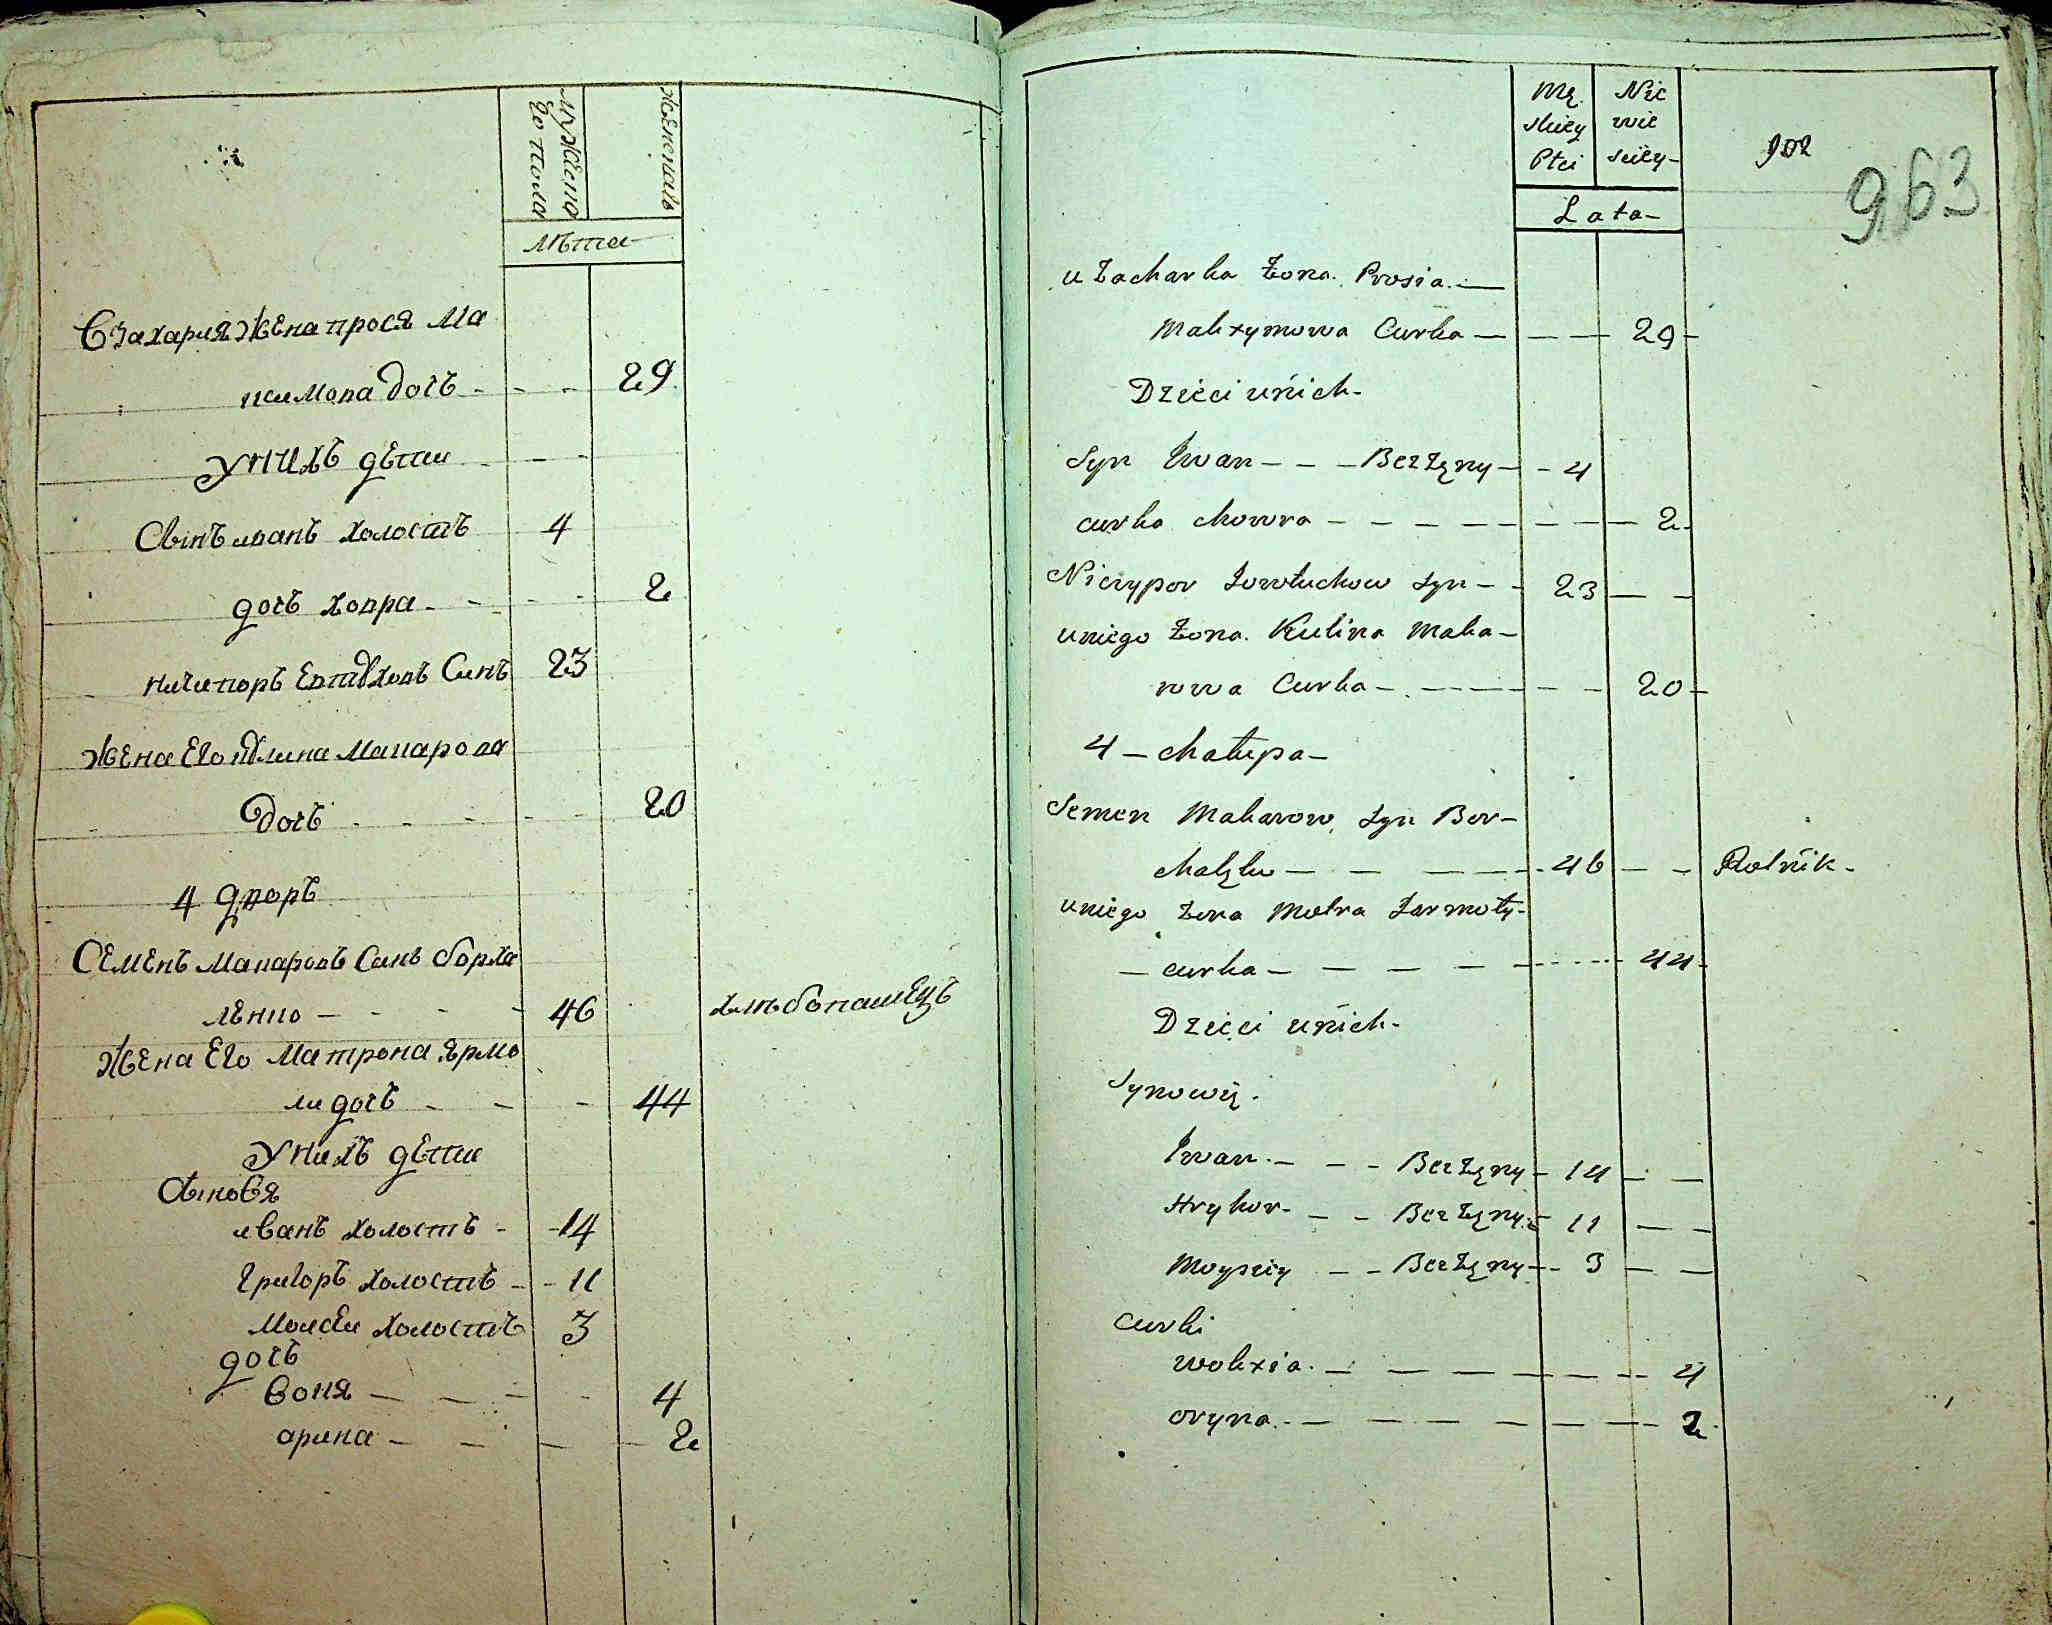 мужеско
го пола
женска
лѣта
Взахария жена прося Ма
ксимова дочь
29
Унихъ дети
Синъ иванъ холостъ 4
дочь ховра 2
ничипоръ Евтухов Синъ 23
Жена Его кулина Макарова
дочь 20
4 дворъ
Семенъ Макаровъ Синъ борха
ленко 46 хлебопашецъ
Жена Его Матрона ярмо
ли дочь 44
Унихъ дети
Синовя
иванъ холостъ 14
григоръ холостъ 11
Моисеи холостъ 3
дочь
вокя 4
арина 2
Mę Nie
skiey wie
Płci sciey
902
963
Lata
u Zacharka Żona Prosia
Maxymowa Curka 29
Dzieci u nich
Syn Iwan Bezżęny 4
curka chowra 2
Niczypor Jowtuchow syn 23
u niego Żona Kulina Maka
rowa Curka 20
4 chałupa
Semen Makarow syn Bor
chalęko 46 Rolnik
u niego Żona Motra Jarmoły
curka 44
Dzieci u nich
Synowię
Iwan Bezżęny 14
Hryhor Bezżęny 11
Moyszey Bezżęny 3
Curki
wolxia 4
oryna 2